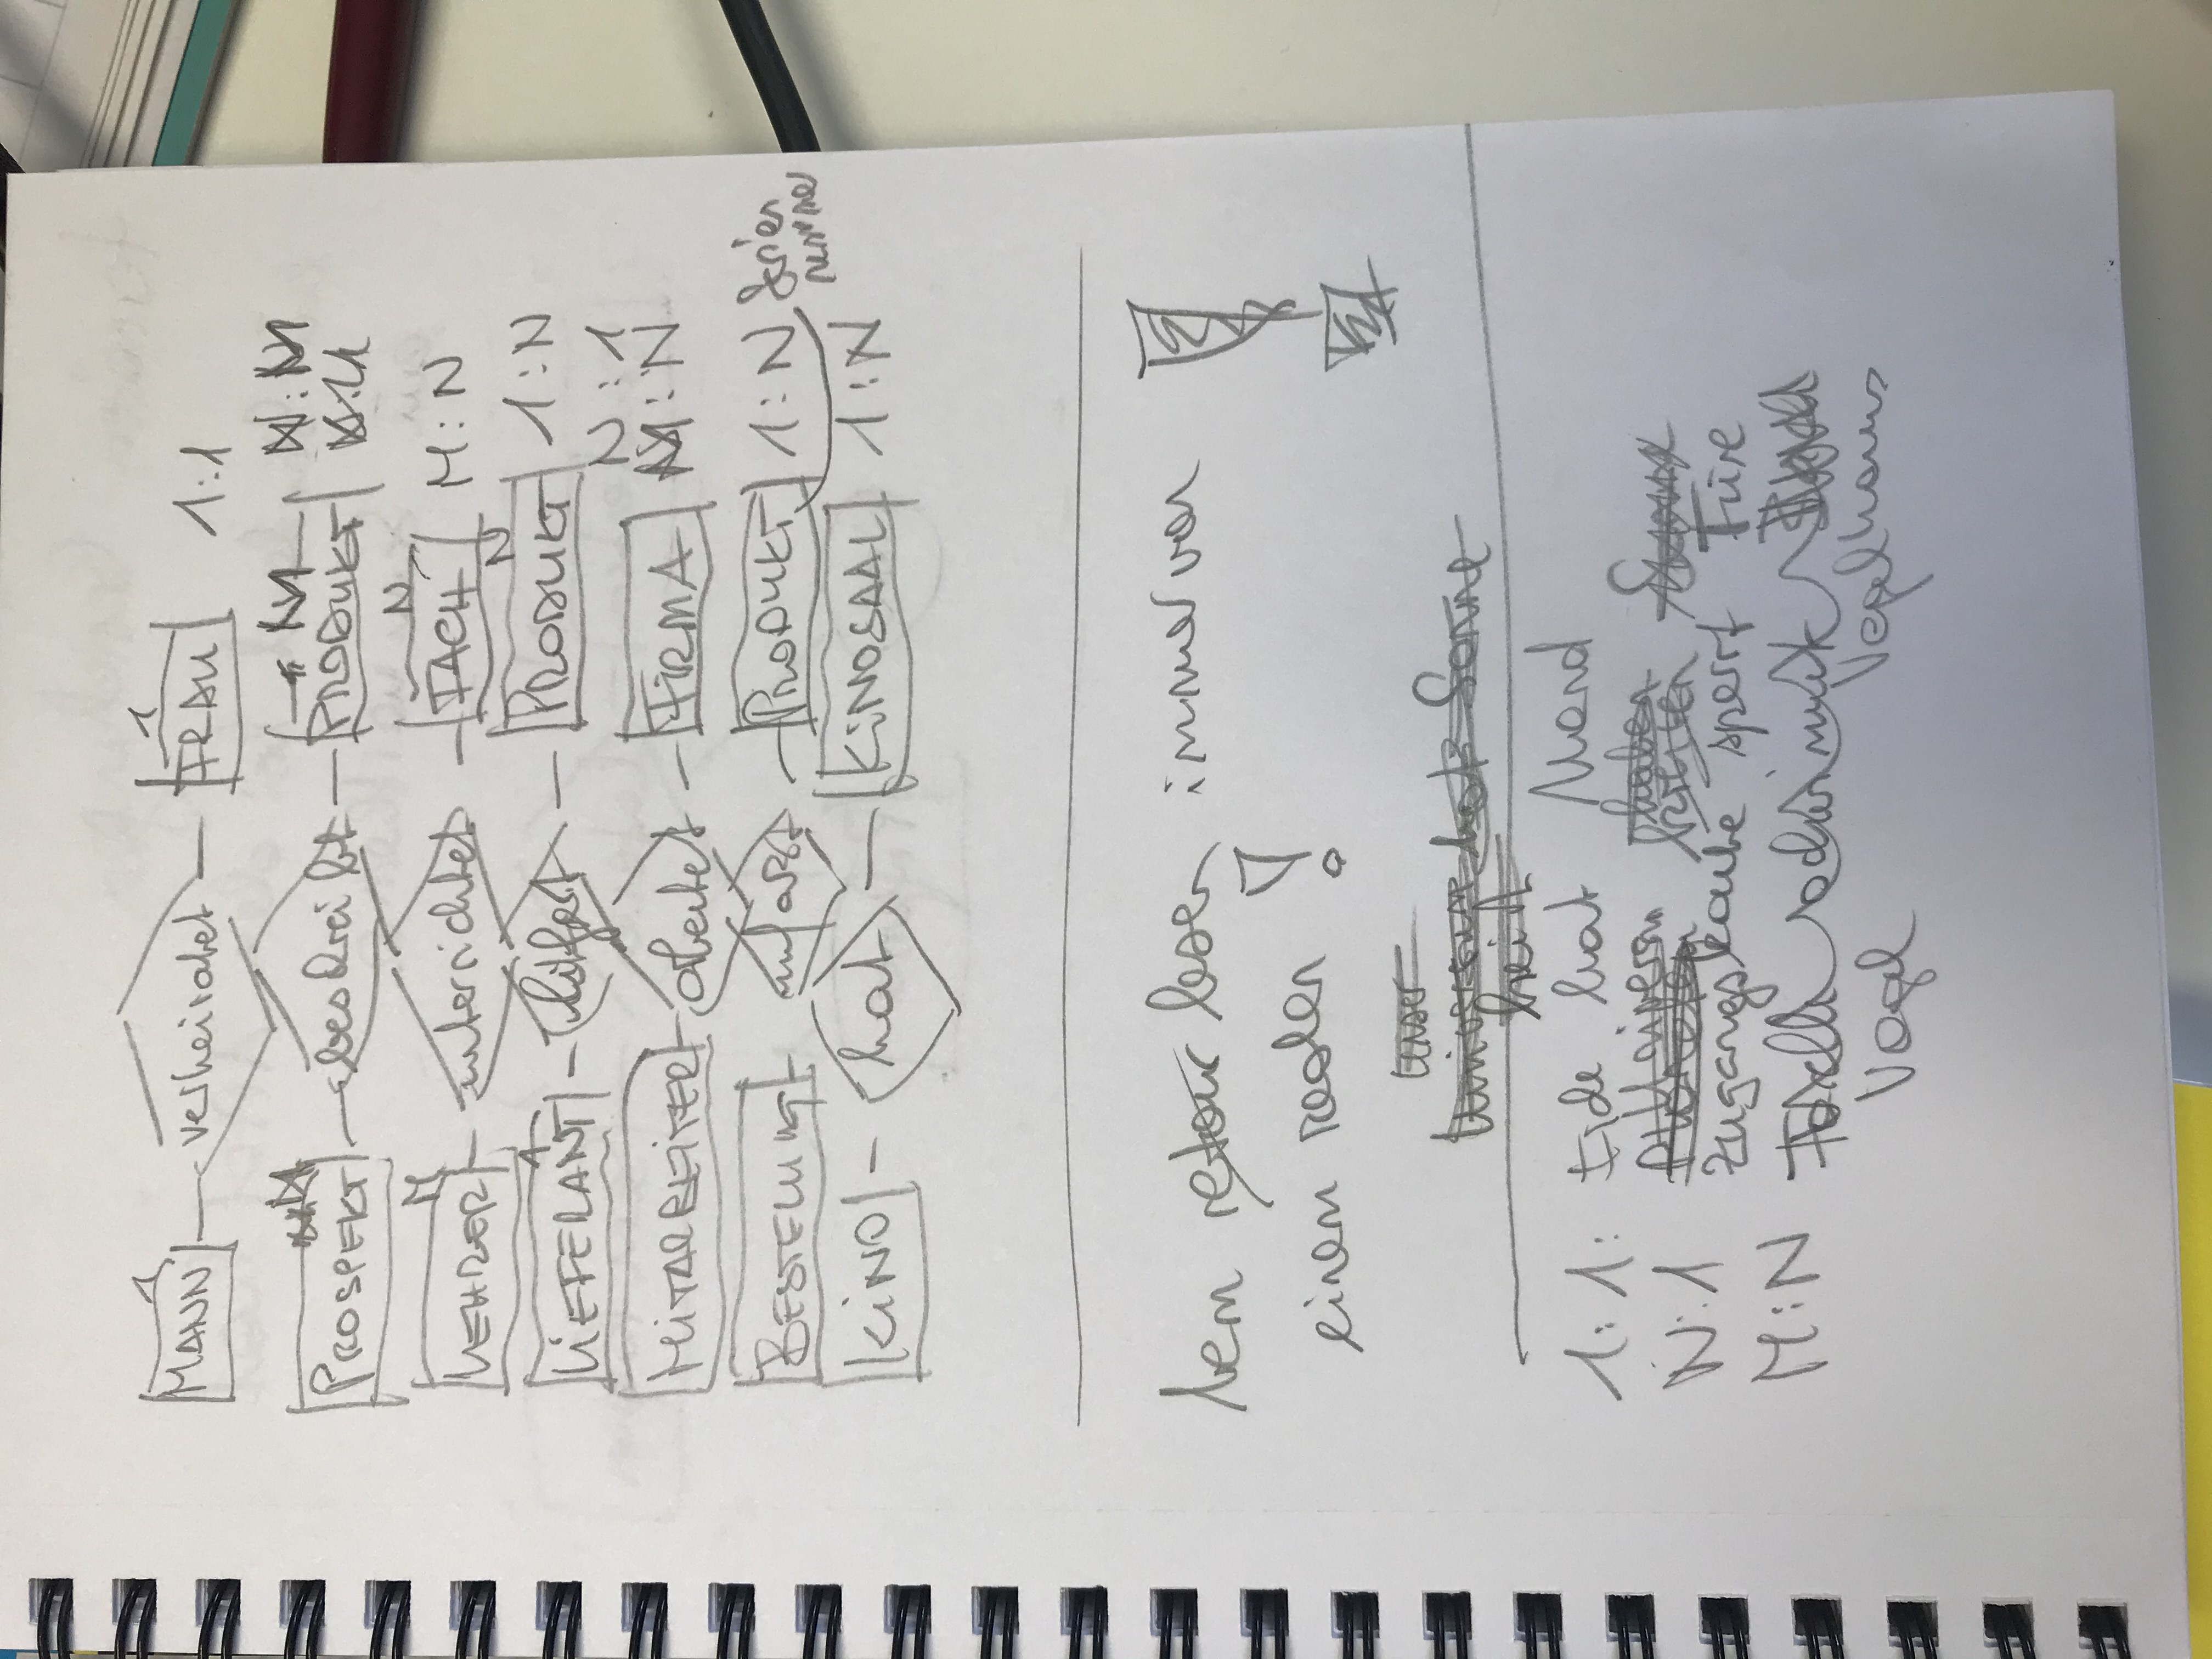 MANN 1 verheiratet FRAU 1 1:1
PROSPEKT beschreibt PRODUKT
LEHRER M unterrichtet FACH N M:N
LIEFERANT 1 liefert PRODUKT N 1:N
N:1
MITARBEITER arbeitet FIRMA M:N
BESTELLUNG umfasst PRODUKT 1:N Serien
nummer
KINO hat KINOSAAL 1:N
bem retour lesen immer von
einem realen !
unser
Universum hat Sonne
1:1: Erde hat Mond
Universen haben
N:1 Planeten
Zugangskarte sperrt Türe
M:N
Vogel Vogelhaus